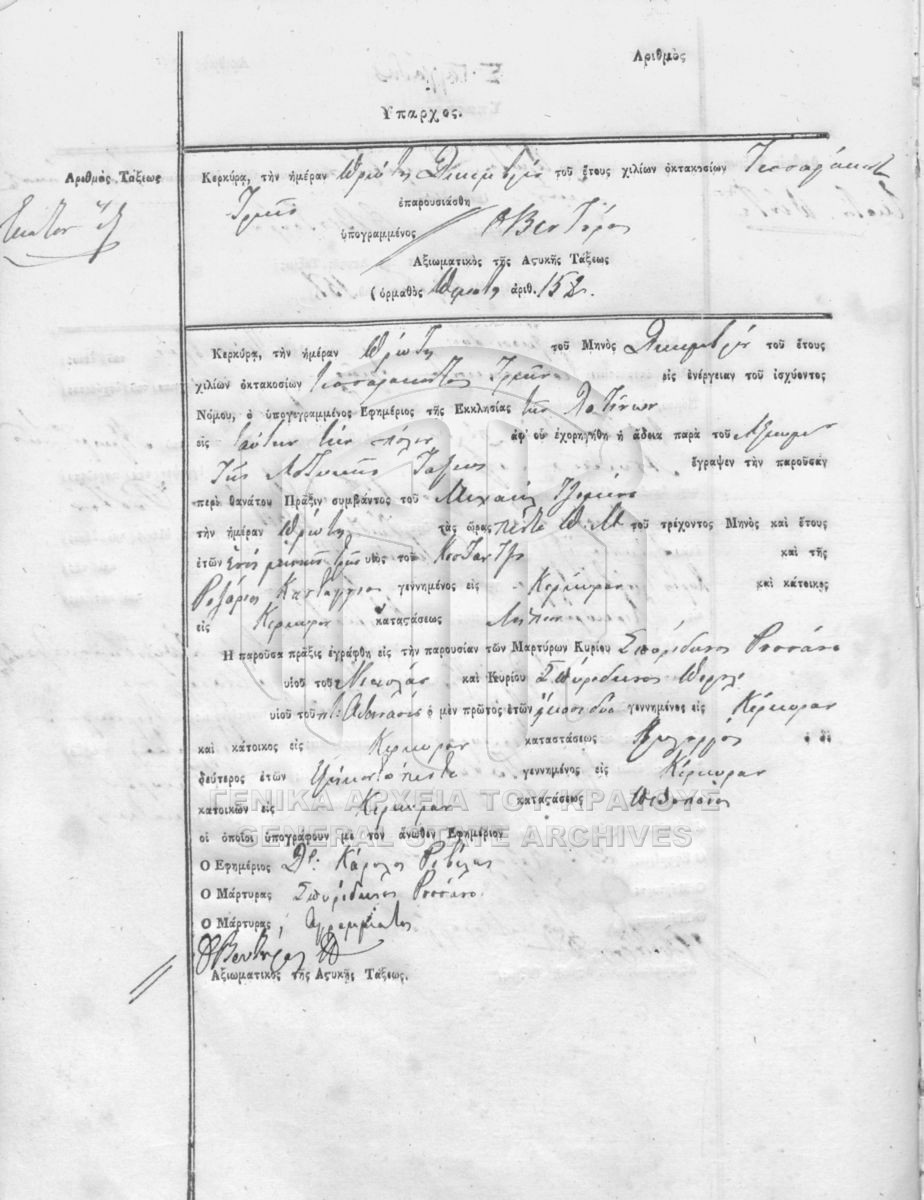 Αριθμὸς
Υπαρχος.
Αριθμὸς Τάξεως
Εκατον ἕξ
Κερκύρᾳ, τὴν ἡμέραν Πρώτη Δεκεμβρίου τοῦ ἔτους χιλίων ὀκτακοσίων Τεσσαράκοντα
Τρεῖς ἐπαρουσιάσθη
ὑπογραμμένος Ο Βεντούρας
Αξιωματικὸς τῆς Αςυκῆς Τάξεως
(ὁρμαθὸς Πρωτος ἀριθ. 152.
Κερκύρᾳ, τὴν ἡμέραν Πρώτη τοῦ Μηνὸς Δεκεμβρίου τοῦ ἔτους
χιλίων ὀκτακοσίων τεσσαρακοντα Τρεῖς εἰς ἐνέργειαν τοῦ ἰσχύοντος
Νόμου, ὁ ὑπογεγραμμένος Εφημέριος τῆς Εκκλησίας τῶν Λατίνων
εἰς ταύτην τὴν πόλιν ἀφ' οὗ ἐχορηγήθη ἡ ἄδεια παρὰ τοῦ
Τῆς Αστυκῆς Τάξεως ἔγραψεν τὴν παροῦσαν
περὶ θανάτου Πρᾶξιν συμβάντος τοῦ Μιχαήλ
τὴν ἡμέραν Πρώτη τὰς ὥρας πέντε Π. Μ. τοῦ τρέχοντος Μηνὸς καὶ ἔτους
ἐτῶν υἱὸς τοῦ Κοσταντῆ καὶ τῆς
γεννημένος εἰς Κέρκυραν καὶ κάτοικος
εἰς Κέρκυραν καταςάσεως
Η παροῦσα πρᾶξις ἐγράφθη εἰς τὴν παρουσίαν τῶν Μαρτύρων Κυρίου Σπυρίδωνος Ροσσάνο
υἱοῦ τοῦ Νικολάου καὶ Κυρίου Σπυρίδωνος
υἱοῦ τοῦ π. Αθανασίου ὁ μὲν πρῶτος ἐτῶν εἴκοσι δυο γεννημένος εἰς Κέρκυραν
καὶ κάτοικος εἰς Κέρκυραν καταστάσεως
δεύτερος ἐτῶν τριάκοντα πέντε γεννημένος εἰς Κέρκυραν
κατοικῶν εἰς Κέρκυραν καταςάσεως
ΓΕΝΙΚΑ ΑΡΧΕΙΑ ΤΟΥ ΚΡΑΤΟΥΣ
GENERAL STATE ARCHIVES
οἱ ὁποῖοι ὑπογράφουν μὲ τὸν ἄνωθεν Εφημέριον
Ο Εφημέριος Δρ. Κάρολος
Ο Μάρτυρας Σπυρίδωνος Ροσσάνο
Ο Μάρτυρας, Αγράμματος
Ο Βεντούρας
Αξιωματικὸς τῆς Αςυκῆς Τάξεως.